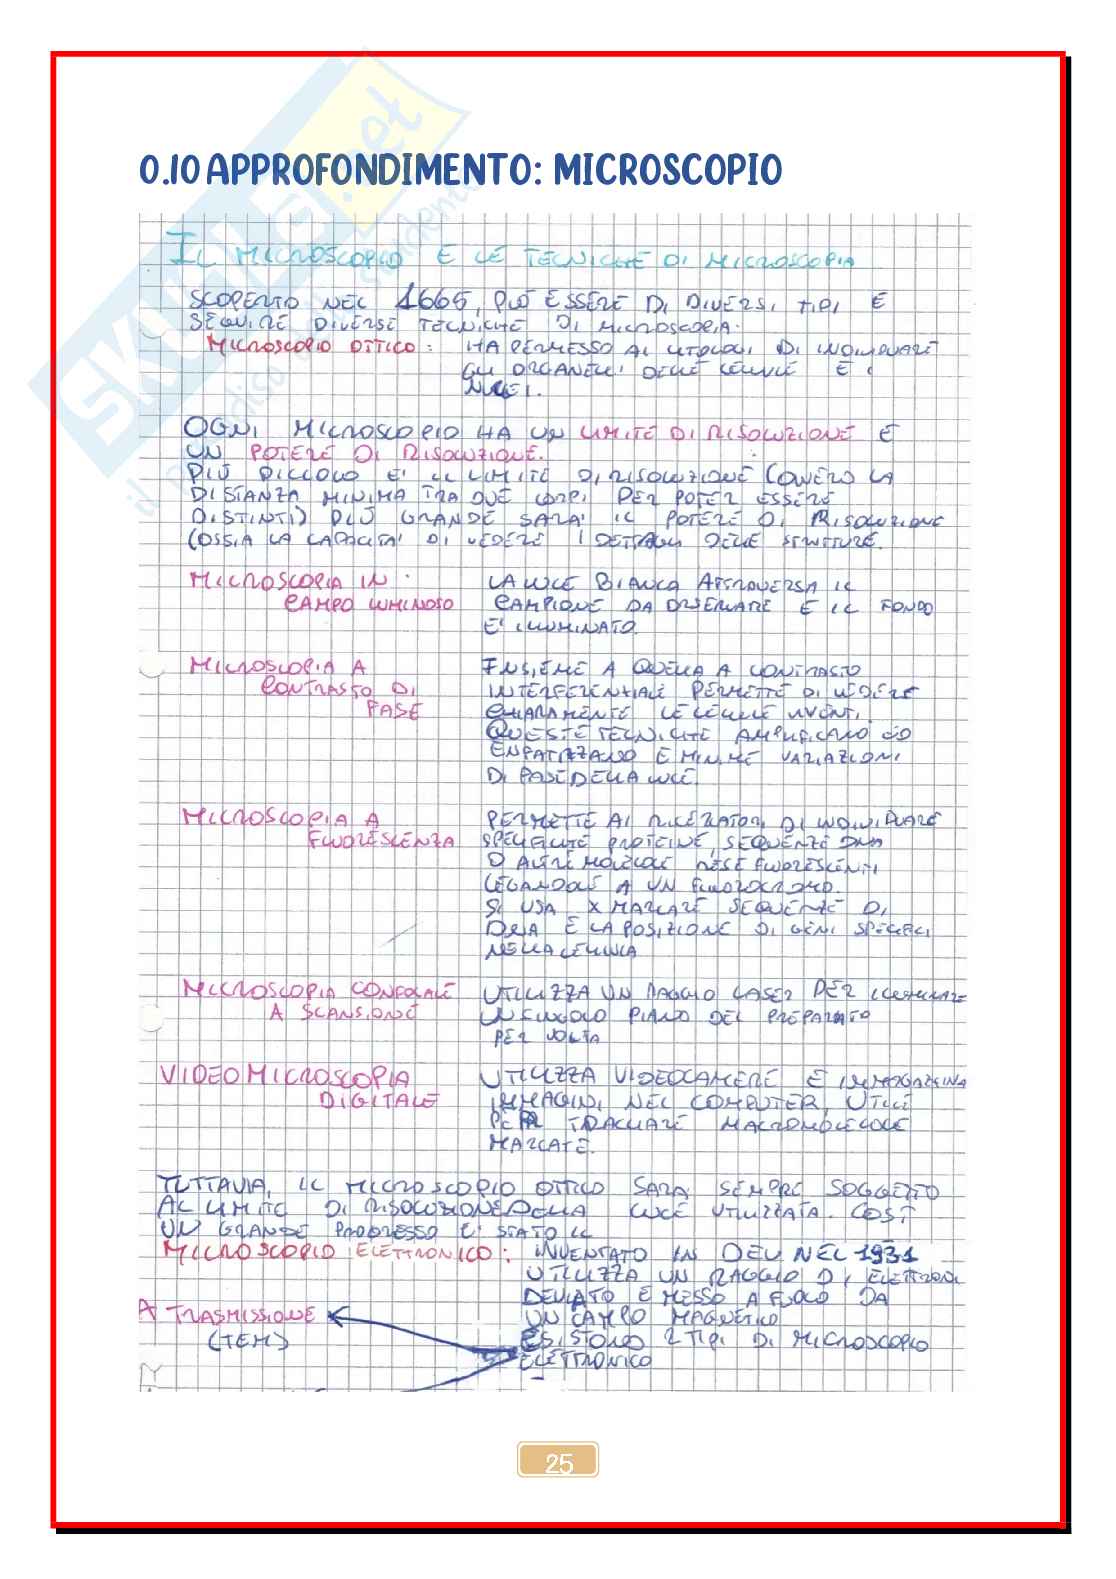 0.10 APPROFONDIMENTO: MICROSCOPIO
IL MICROSCOPIO E LE TECNICHE DI MICROSCOPIA
SCOPERTO NEL 1665, PUÓ ESSERE DI DIVERSI TIPI E
SEGUIRE DIVERSE TECNICHE DI MICROSCOPIA.
MICROSCOPIO OTTICO: HA PERMESSO AI CITOLOGI DI INDIVIDUARE
GLI ORGANELLI DELLE CELLULE E I
NUCLEI.
OGNI MICROSCOPIO HA UN LIMITE DI RISOLUZIONE E
UN POTERE DI RISOLUZIONE.
PIÚ PICCOLO E' IL LIMITE DI RISOLUZIONE (OVVERO LA
DISTANZA MINIMA TRA DUE CORPI PER POTER ESSERE
DISTINTI) PIÚ GRANDE SARA' IL POTERE DI RISOLUZIONE
(OSSIA LA CAPACITA' DI VEDERE I DETTAGLI DELLE STRUTTURE.
MICROSCOPIA IN : LA LUCE BIANCA ATTRAVERSA IL
CAMPO LUMINOSO CAMPIONE DA OSSERVARE E IL FONDO
E' ILLUMINATO.
MICROSCOPIA A INSIEME A QUELLA A CONTRASTO
CONTRASTO DI INTERFERENZIALE PERMETTE DI VEDERE
FASE CHIARAMENTE LE CELLULE VIVENTI.
QUESTE TECNICHE AMPLIFICANO ED
ENFATIZZANO E MINIME VARIAZIONI
DI FASE DELLA LUCE.
MICROSCOPIA A PERMETTE AI RICERCATORI DI INDIVIDUARE
FLUORESCENZA SPECIFICHE PROTEINE, SEQUENZE DNA
O ALTRE MOLECOLE RESE FLUORESCENTI
LEGANDOLE A UN FLUOROCROMO.
SI USA X MARCARE SEQUENZE DI
DNA E LA POSIZIONE DI GENI SPECIFICI
NELLA CELLULA
MICROSCOPIA CONFOCALE UTILIZZA UN RAGGIO LASER PER ILLUMINARE
A SCANSIONE UN SINGOLO PIANO DEL PREPARATO
PER VOLTA
VIDEOMICROSCOPIA UTILIZZA VIDEOCAMERE E IMMAGAZZINA
DIGITALE IMMAGINI NEL COMPUTER, UTILE
PER TRACCIARE MACROMOLECOLE
MARCATE.
TUTTAVIA, IL MICROSCOPIO OTTICO SARÁ SEMPRE SOGGETTO
AL LIMITE DI RISOLUZIONE DELLA LUCE UTILIZZATA. COSÍ
UN GRANDE PROGRESSO E' STATO IL
MICROSCOPIO ELETTRONICO: INVENTATO IN DEU NEL 1931
UTILIZZA UN RAGGIO DI ELETTRONI
DEVIATO E MESSO A FUOCO DA
A TRASMISSIONE UN CAMPO MAGNETICO
(TEM) ESISTONO 2 TIPI DI MICROSCOPIO
ELETTRONICO
25
SKUOLA.net
il paradiso dello studente